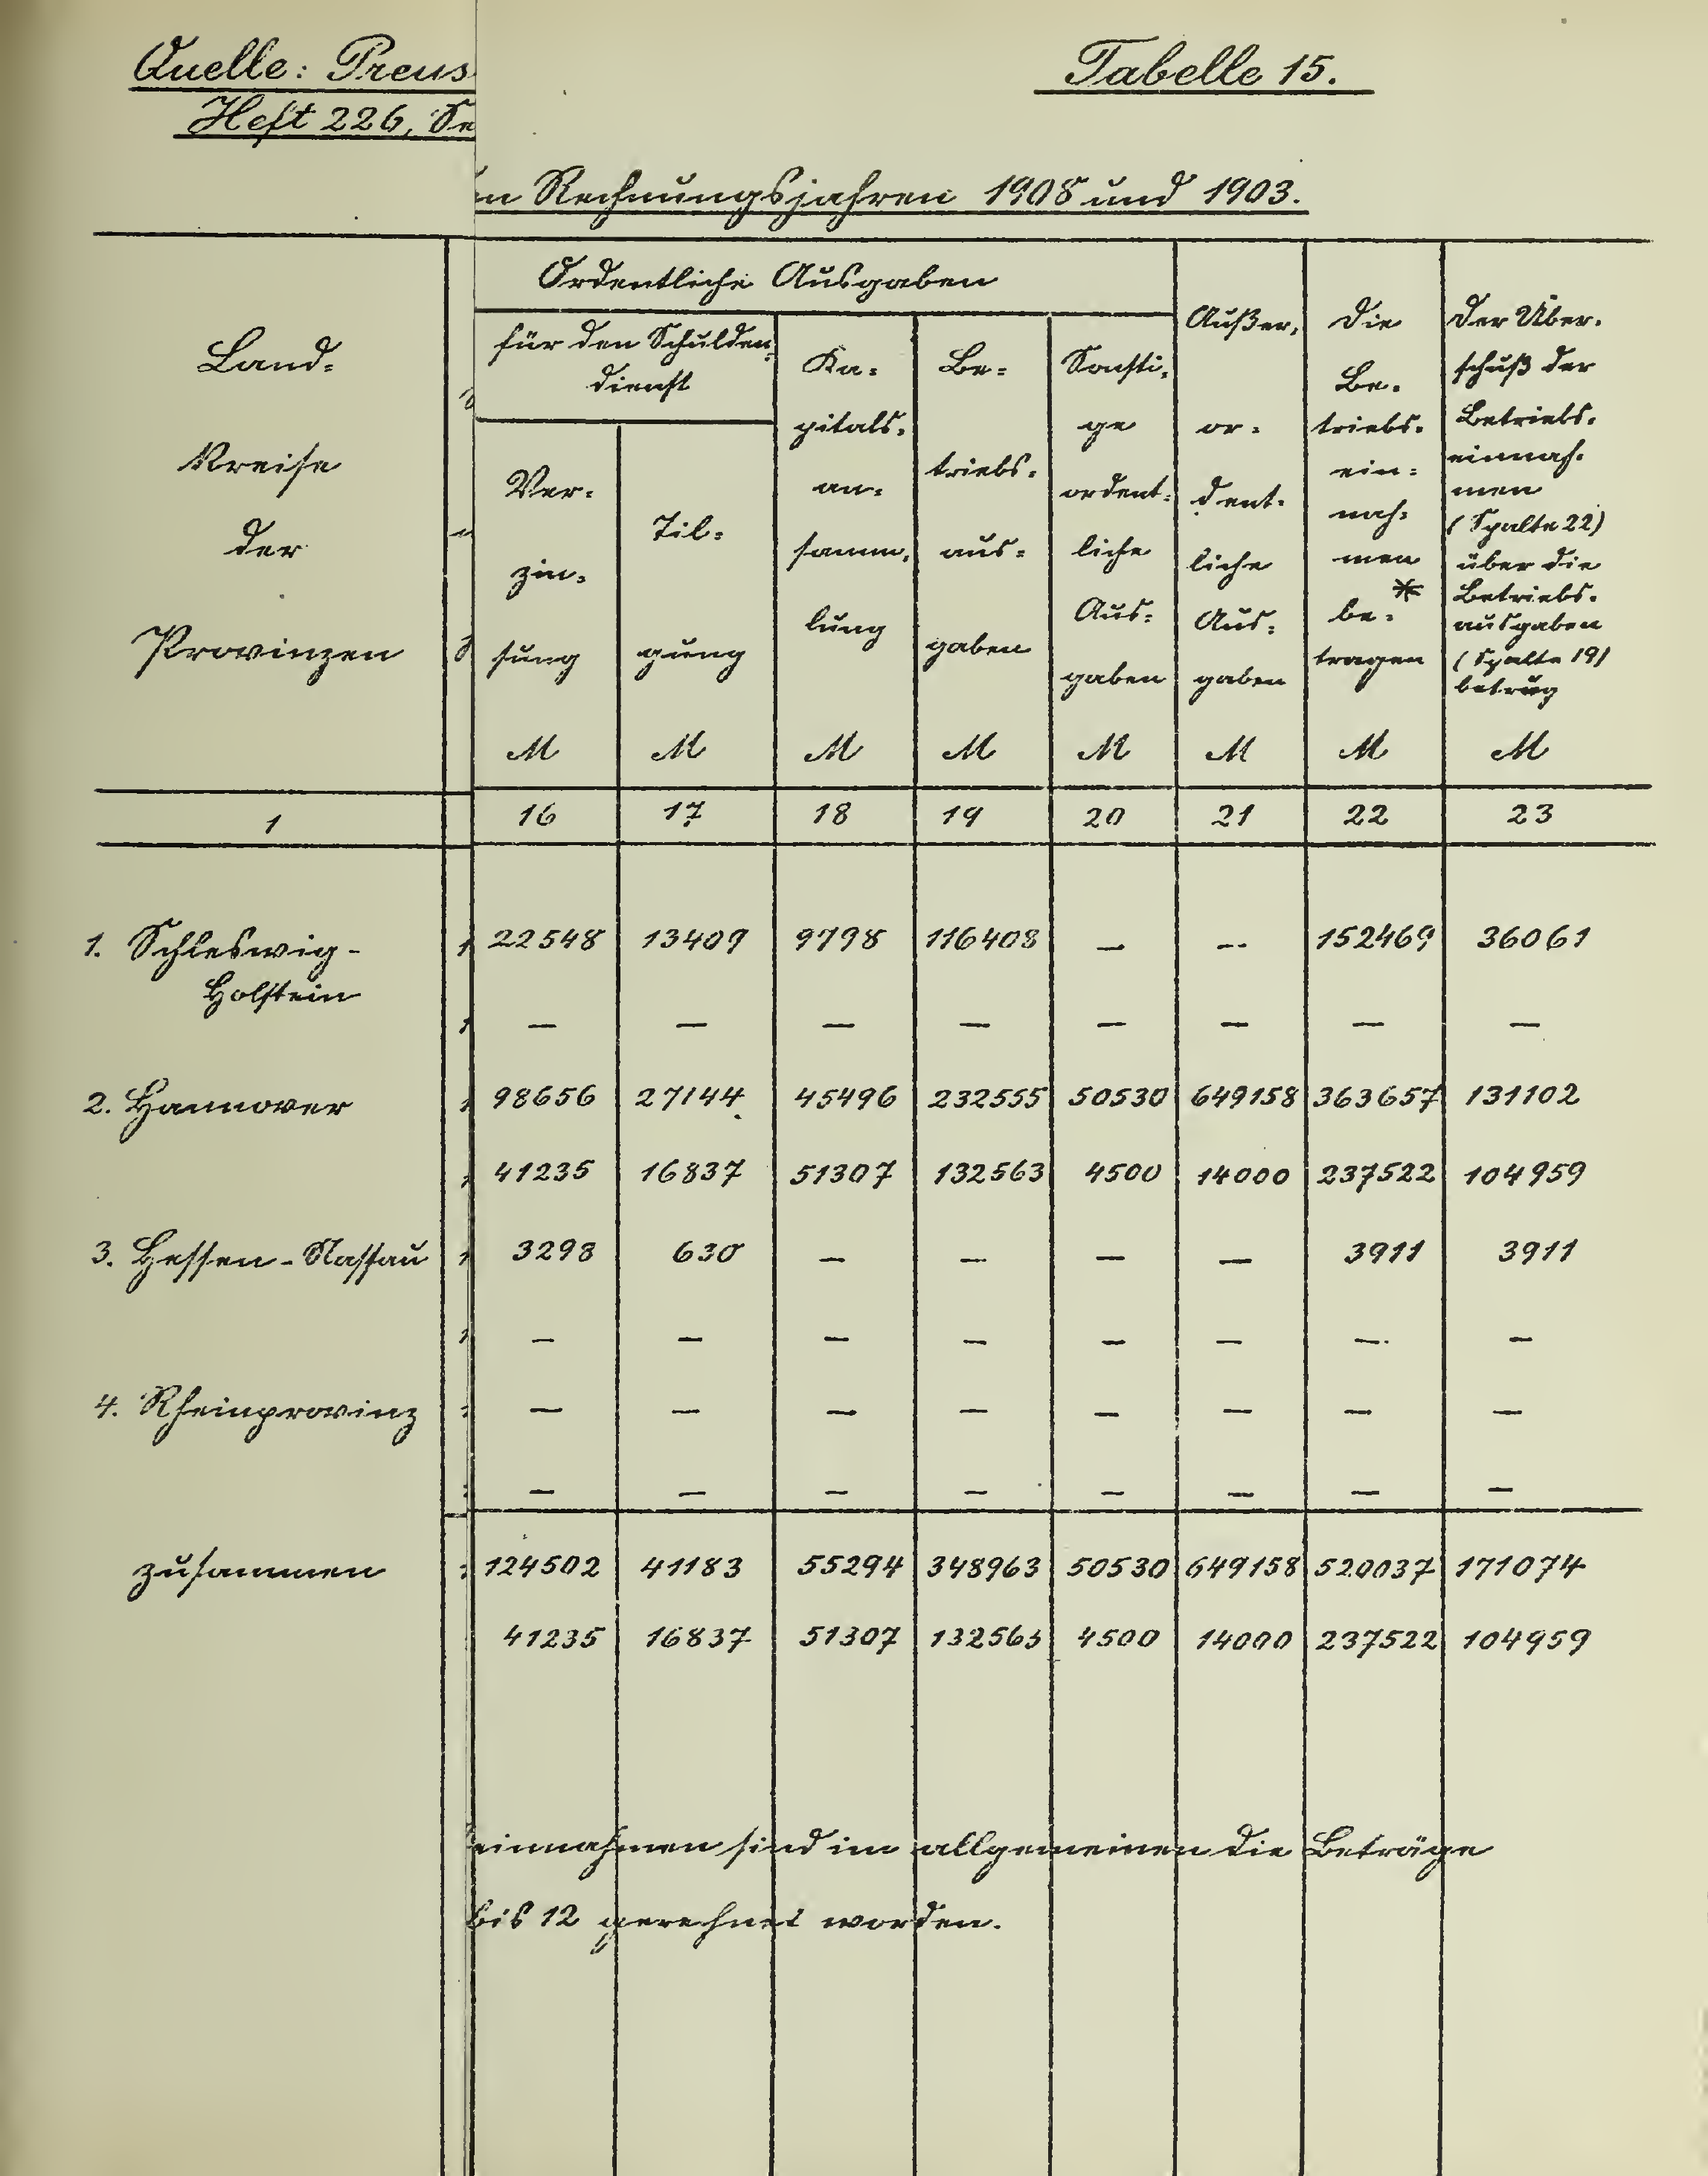 Quelle: Preus
Heft 226, Se
Tabelle 15.
en Rechnungsjahren 1908 und 1903.
Land-
Kreise
der
Provinzen
Ordentliche Ausgaben
für den Schulden-
dienst
Ver-
zin-
sung
M
Til-
gung
M
Ka-
pitals-
an-
samm-
lung
M
Be-
triebs-
aus-
gaben
M
Sonsti-
ge
ordent-
liche
Aus-
gaben
M
Außer-
or-
dent-
liche
Aus-
gaben
M
Die
Be-
triebs-
ein-
nah-
men
be-*
tragen
M
Der Über-
schuß der
Betriebs-
einnah-
men
(Spalte 22)
über die
Betriebs-
ausgaben
(Spalte 19)
betrug
M
1 16 17 18 19 20 21 22 23
1. Schleswig- 22548 13409 9798 116408 — — 152469 36061
Holstein
— — — — — — — —
2. Hannover 98656 27144 45496 232555 50530 649158 363657 131102
41235 16837 51307 132563 4500 14000 237522 104959
3. Hessen-Nassau 3298 630 — — — — 3911 3911
— — — — — — — —
4. Rheinprovinz — — — — — — — —
— — — — — — — —
zusammen 124502 41183 55294 348963 50530 649158 520037 171074
41235 16837 51307 132563 4500 14000 237522 104959
einnahmen sind im allgemeinen die Beträge
bis 12 gerechnet worden.